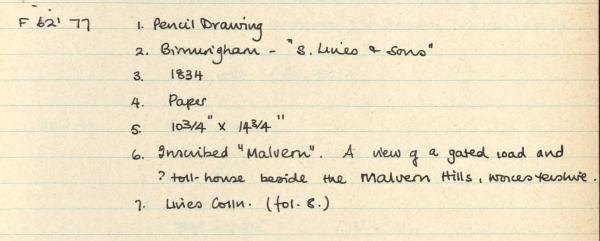 F 62' 77 1. Pencil Drawing
2. Birmingham - "S. Lines & Sons"
3. 1834
4. Paper
5. 10 3/4" x 14 3/4"
6. Inscribed "Malvern". A view of a gated road and
? toll-house beside the Malvern Hills, Worcestershire.
7. Lines Colln. (fol. 8.)